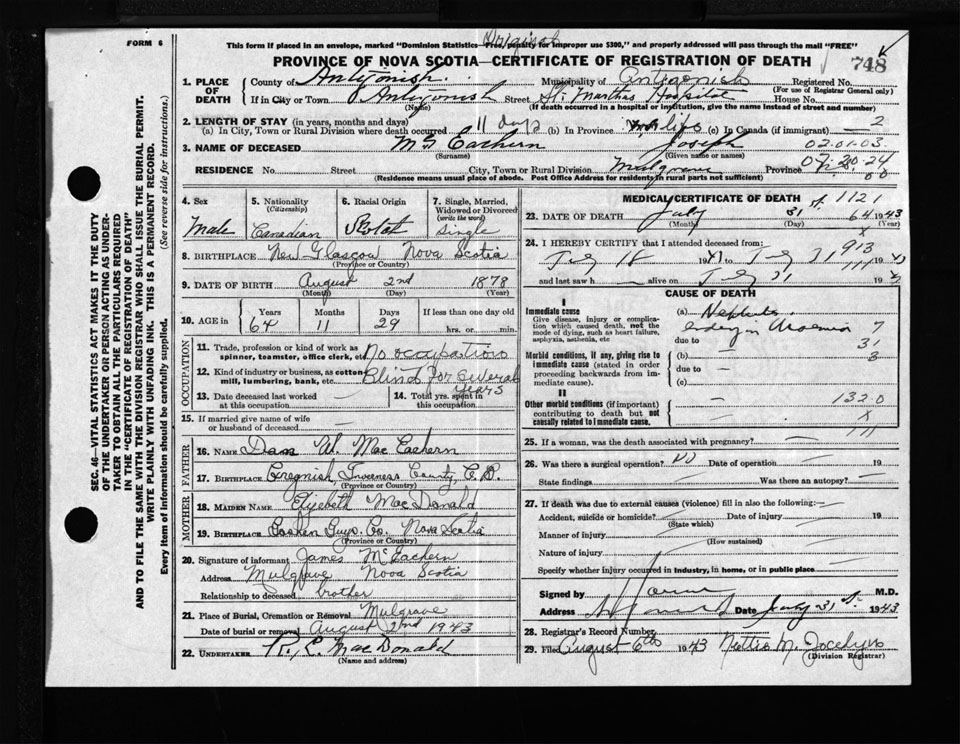 FORM 6
Original
This form if placed in an envelope, marked "Dominion Statistics—Free, penalty for improper use $300," and properly addressed will pass through the mail "FREE"
PROVINCE OF NOVA SCOTIA—CERTIFICATE OF REGISTRATION OF DEATH
748
1. PLACE OF DEATH
County of Antigonish. Municipality of Antigonish Registered No.
(For use of Registrar General only)
If in City or Town Antigonish Street St. Marthas Hospital House No.
(Name) (If death occurred in a hospital or institution, give the name instead of street and number)
2. LENGTH OF STAY (in years, months and days)
(a) In City, Town or Rural Division where death occurred 11 days (b) In Province life (c) In Canada (if immigrant) — 2
3. NAME OF DECEASED McEachern Joseph 02.01.03.
(Surname) (Given name or names)
RESIDENCE No. Street City, Town or Rural Division Mulgrave Province 07.20.24
(Residence means usual place of abode. Post Office Address for residents in rural parts not sufficient) 00
4. Sex
Male
5. Nationality
(Citizenship)
Canadian
6. Racial Origin
Scotch
7. Single, Married, Widowed or Divorced
(write the word)
Single
8. BIRTHPLACE New Glasgow Nova Scotia
(Province or Country)
9. DATE OF BIRTH August 2nd 1878
(Month) (Day) (Year)
10. AGE in Years Months Days If less than one day old
64 11 29 hrs. or min.
OCCUPATION
11. Trade, profession or kind of work as spinner, teamster, office clerk, etc. No occupation
12. Kind of industry or business, as cotton mill, lumbering, bank, etc. Blind for several years
13. Date deceased last worked at this occupation —
14. Total yrs. spent in this occupation
15. If married give name of wife or husband of deceased —
FATHER
16. NAME Dan W. MacEachern
17. BIRTHPLACE Creignish, Inverness County, C.B.
(Province or Country)
MOTHER
18. MAIDEN NAME Elizebeth MacDonald
19. BIRTHPLACE Goshen Guys. Co. Nova Scotia
(Province or Country)
20. Signature of informant James McEachern
Address Mulgrave Nova Scotia
Relationship to deceased brother
21. Place of Burial, Cremation or Removal Mulgrave
Date of burial or removal August 2nd 1943
22. UNDERTAKER R. E. MacDonald
(Name and address)
MEDICAL CERTIFICATE OF DEATH 1121
23. DATE OF DEATH July 31 64 1943
(Month) (Day) (Year)
913
24. I HEREBY CERTIFY that I attended deceased from:
July 18 1943 to July 31 1943
and last saw h alive on July 31 19
CAUSE OF DEATH
I
Immediate cause
Give disease, injury or complication which caused death, not the mode of dying, such as heart failure, asphyxia, asthenia, etc
(a) Nephritis
Uraemia 7
due to 31
Morbid conditions, if any, giving rise to immediate cause (stated in order proceeding backwards from immediate cause).
(b) — 3
due to —
(c)
II
Other morbid conditions (if important) contributing to death but not causally related to immediate cause.
1320
111
25. If a woman, was the death associated with pregnancy? —
26. Was there a surgical operation? No Date of operation — 19
State findings Was there an autopsy? —
27. If death was due to external causes (violence) fill in also the following:—
Accident, suicide or homicide? Date of injury 19
(State which)
Manner of injury
(How sustained)
Nature of injury
Specify whether injury occurred in industry, in home, or in public place
Signed by M.D.
Address Date July 31 1943
28. Registrar's Record Number
29. Filed August 6th 1943 Nettie M. Jocelyn
(Division Registrar)
SEC. 46—VITAL STATISTICS ACT MAKES IT THE DUTY
OF THE UNDERTAKER OR PERSON ACTING AS UNDER-
TAKER TO OBTAIN ALL THE PARTICULARS REQUIRED
IN THE "CERTIFICATE OF REGISTRATION OF DEATH"
AND TO FILE THE SAME WITH THE DIVISION REGISTRAR WHO SHALL ISSUE THE BURIAL PERMIT.
WRITE PLAINLY WITH UNFADING INK. THIS IS A PERMANENT RECORD.
Every item of information should be carefully supplied. (See reverse side for instructions.)